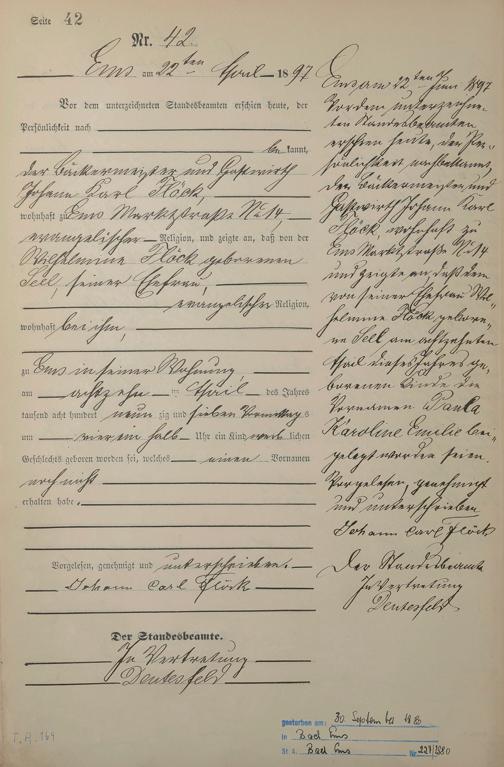 Seite 42
Nr. 42.
Ems am 22ten April 1897
Vor dem unterzeichneten Standesbeamten erschien heute, der
Persönlichkeit nach
be kannt,
der Bäckermeister und Gastwirth
Johann Karl Flöck,
wohnhaft zu Ems Marktstraße No 14
evangelischer Religion, und zeigte an, daß von der
Wilhelmine Flöck geborenen
Sell, seiner Ehefrau,
evangelischer Religion,
wohnhaft bei ihm,
zu Ems in seiner Wohnung,
am achtzehn ten April des Jahres
tausend acht hundert neun zig und sieben Vormittags
um vier ein halb Uhr ein Kind weib lichen
Geschlechts geboren worden sei, welches einen Vornamen
noch nicht
erhalten habe.
Vorgelesen, genehmigt und unterschrieben.
Johann Carl Flöck
Der Standesbeamte.
In Vertretung
Deutesfeld
Ems am 12ten Juni 1897
Vor dem unterzeichne-
ten Standesbeamten
erschien heute, der Per-
sönlichkeit nach bekannt,
der Bäckermeister und
Gastwirth Johann Karl
Flöck wohnhaft zu
Ems Marktstraße No 14
und zeigte an, daß dem
von seiner Ehefrau Wil-
helmine Flöck gebore-
ne Sell am achtzehnten
April dieses Jahres ge-
borenen Kinde die
Vornamen Paula
Karoline Emilie bei-
gelegt worden seien.
Vorgelesen, genehmigt
und unterschrieben
Johann Carl Flöck
Der Standesbeamte
In Vertretung
Deutesfeld
gestorben am: 30. September
in Bad Ems
St. A. Bad Ems Nr.
T. A. 169